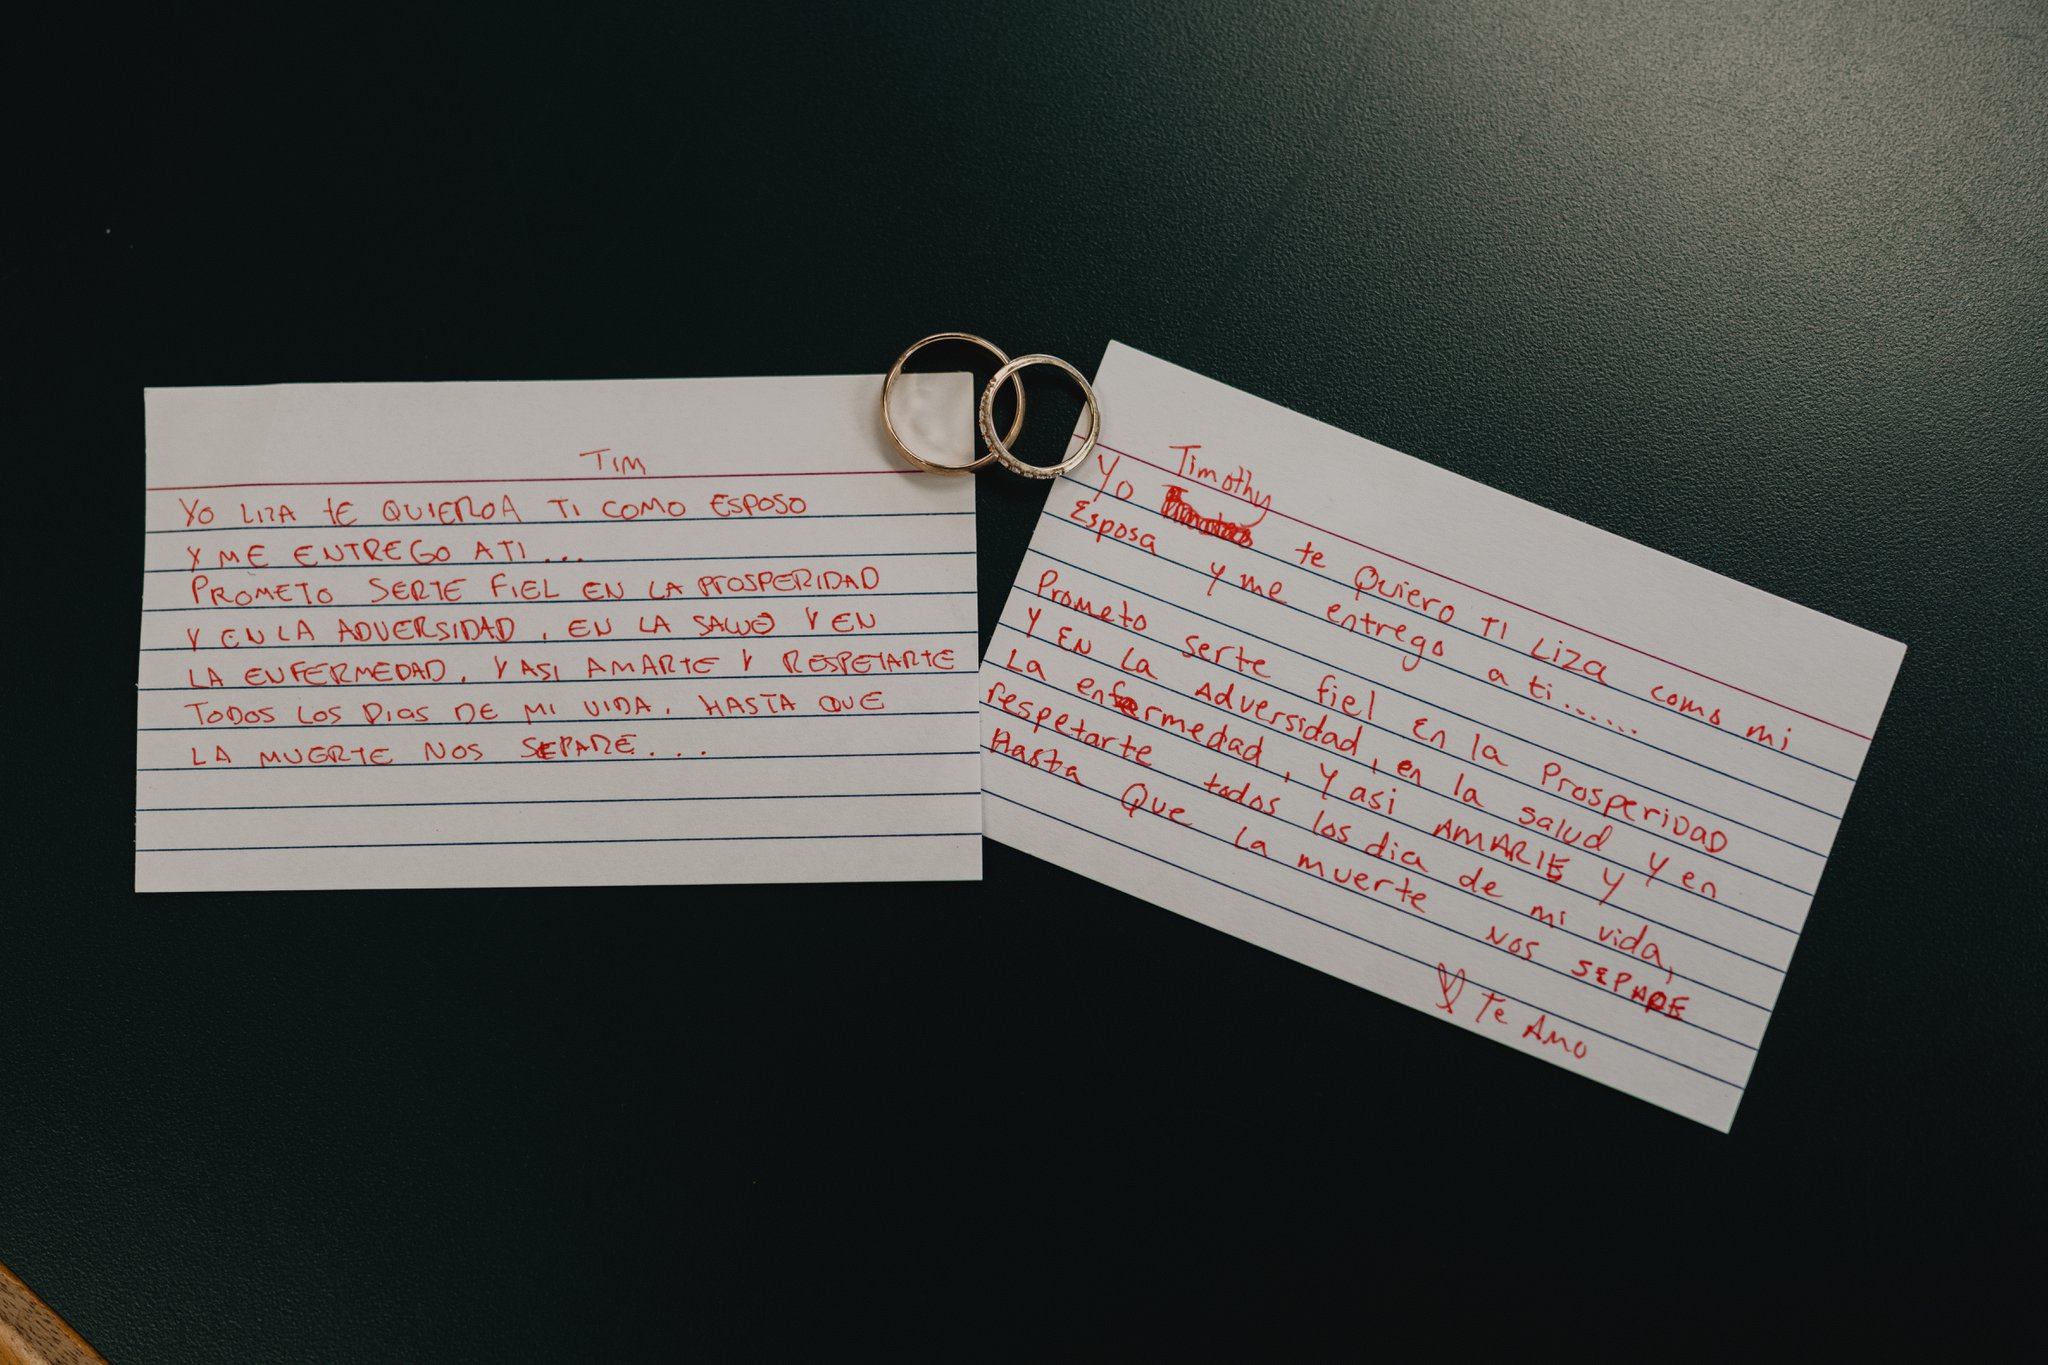 TIM
YO LIZA TE QUIEROA TI COMO ESPOSO
Y ME ENTREGO A TI...
PROMETO SERTE FIEL EN LA PROSPERIDAD
Y EN LA ADVERSIDAD, EN LA SALUD Y EN
LA ENFERMEDAD. Y ASI AMARTE Y RESPETARTE
TODOS LOS DIAS DE MI VIDA. HASTA QUE
LA MUERTE NOS SEPARE...
Timothy
Yo te Quiero TI LIZA como mi
Esposa y me entrego a ti......
Prometo serte fiel En la ProsperiDAD
Y EN La ADversidad, en la salud y en
La enfermedad, Y asi AMARTE y
respetarte todos los dia de mi vida,
Hasta Que la muerte NOS SEPARE
Te Amo